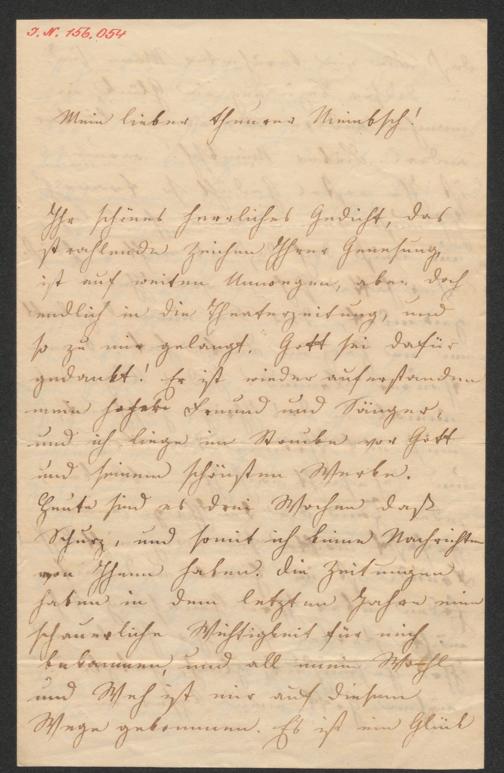 I. N. 156.054
Mein lieber theurer Niembsch!
Ihr schönes herrliches Gedicht, das
strahlende Zeichen Ihrer Genesung,
ist auf weiten Umwegen, aber doch
endlich in die Theaterzeitung, und
so zu mir gelangt. Gott sei dafür
gedankt! Er ist wieder auferstanden
mein Freund und Sänger,
und ich liege im Staube vor Gott
und seinem schönsten Werke.
Heute sind es drei Wochen daß
Schurz, und somit ich keine Nachrichten
von Ihnen haben. Die Zeitungen
haben in dem letzten Jahre eine
schauerliche Wichtigkeit für mich
bekommen, und all mein Wohl
und Weh ist mir auf diesem
Wege gekommen. Es ist ein Glück